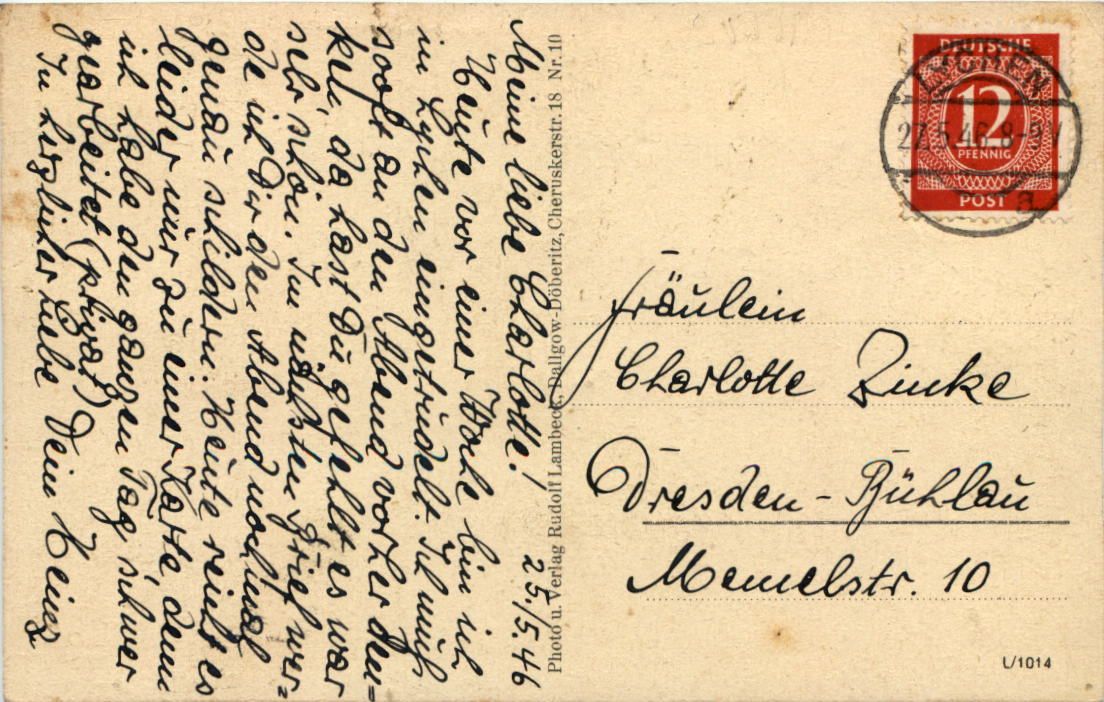 Meine liebe Charlotte! 25./5.46
Heute vor einer Woche bin ich
in Lychen eingetrudelt. Ich muß
sooft an den Abend vorher den=
ken, da hast Du gefehlt es war
sehr schön. Im nächsten Brief wer=
de ich Dir den Abend nochmal
genau schildern. Heute reicht es
leider nur zu einer Karte, denn
ich habe den ganzen Tag schwer
gearbeitet (privat)
In herzlicher Liebe Dein Heinz
Photo u. Verlag Rudolf Lambeck, Dallgow-Döberitz, Cheruskerstr. 18 Nr. 10
DEUTSCHE
12
PFENNIG
POST
LYCHEN
27.5.46.8-9V
a
Fräulein
Charlotte Zinke
Dresden - Bühlau
Memelstr. 10
L/1014